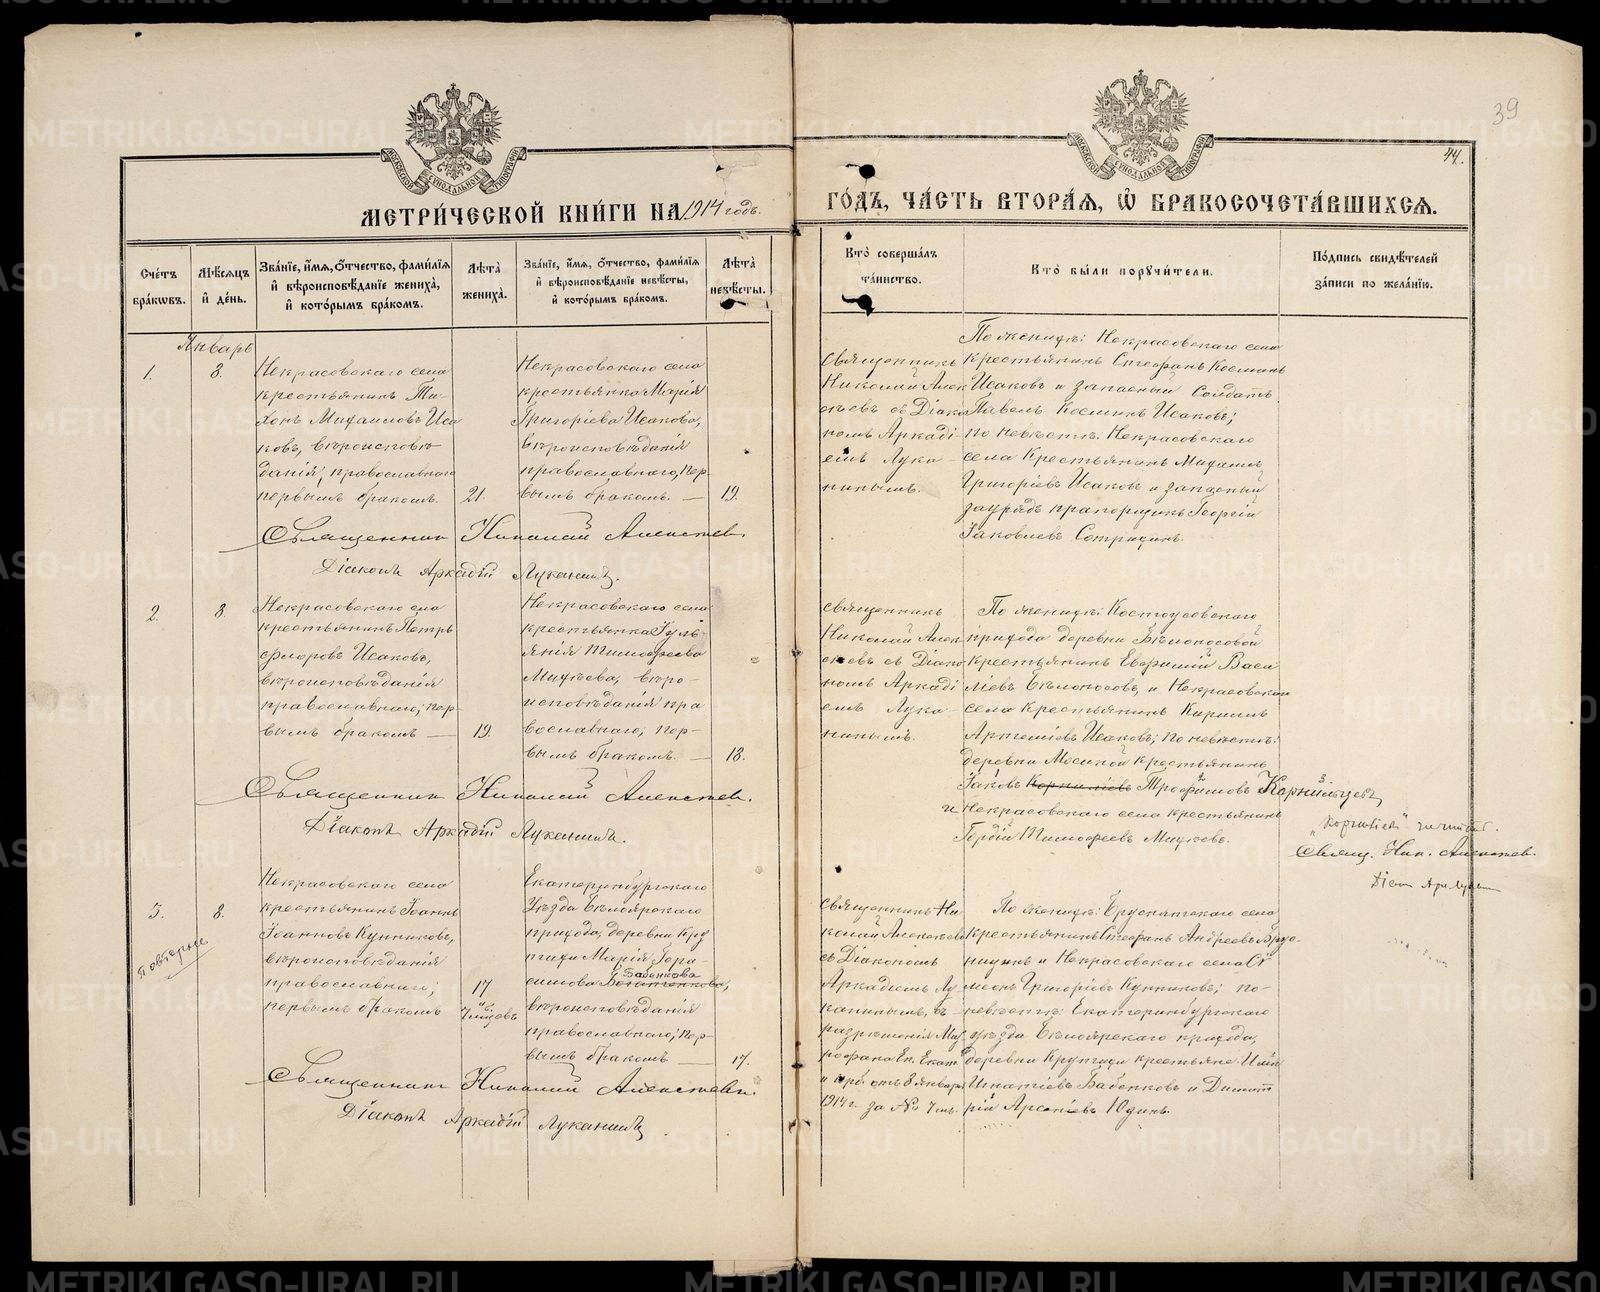 39
44.
МЕТРИ́ЧЕСКОЙ КНИ́ГИ НА 1914 годъ.
ГО́ДЪ, ЧА́СТЬ ВТОРА́Я, Ѡ҆ БРАКОСОЧЕТА́ВШИХСЯ.
Сче́тъ бра́кѡвъ.
Мѣ́сяцъ и҆ де́нь.
Зва́нїе, и҆́мя, ѻ҆́тчество, фами́лїя и҆ вѣроисповѣ́данїе жениха̀, и҆ кото́рымъ бра́комъ.
Лѣ́та жениха̀.
Зва́нїе, и҆́мя, ѻ҆́тчество, фами́лїя и҆ вѣроисповѣ́данїе невѣ́сты, и҆ кото́рымъ бра́комъ.
Лѣ́та невѣ́сты.
Кто̀ соверша́лъ та́инство.
Кто̀ бы́ли порꙋчи́тели.
По́дпись свидѣ́телей за́писи по жела́нїю.
Январь
1.
8.
Некрасовскаго села
крестьянинъ Ти-
хонъ Михаиловъ Иса
ковъ, вѣроисповѣ-
данія православнаго
первымъ бракомъ.
21.
Некрасовскаго села
крестьянка Марія
Григоріева Исакова,
вѣроисповѣданія
православнаго, пер-
вымъ бракомъ. —
19.
Священникъ
Николай Алек
сѣевъ съ Діако
номъ Аркаді-
емъ Лука-
нинымъ.
По женихѣ: Некрасовскаго села
крестьянинъ Стефанъ Косминъ
Исаковъ и запасный солдатъ
Павелъ Косминъ Исаковъ;
по невѣстѣ: Некрасовскаго
села крестьянинъ Михаилъ
Григоріевъ Исаковъ и запасный
заурядъ прапорщикъ Георгій
Іаковлевъ
Священникъ Николай Алексѣевъ.
Діаконъ Аркадій Луканинъ.
2.
8.
Некрасовскаго села
крестьянинъ Петръ
Флоровъ Исаковъ,
вѣроисповѣданія
православнаго; пер-
вымъ бракомъ —
19.
Некрасовскаго села
крестьянка Іулі-
анія Тимофеева
Михѣева, вѣро-
исповѣданія пра
вославнаго; пер-
вымъ бракомъ. —
18.
Священникъ
Николай Алек
сѣевъ съ Діако
номъ Аркаді
емъ Лука-
нинымъ.
По женихѣ: Костоусовскаго
прихода деревни Бѣлоносовой
крестьянинъ Евфимій Васи
ліевъ Бѣлоносовъ, и Некрасовскаго
села крестьянинъ Кириллъ
Артеміевъ Исаковъ; по невѣстѣ:
деревни Мосиной крестьянинъ
Іаковъ Корниліевъ Трофимовъ Корнильцевъ
и Некрасовскаго села крестьянинъ
Гордій Тимофеевъ Михѣевъ.
Свящ. Ник. Алексѣевъ.
Священникъ Николай Алексѣевъ.
Діаконъ Аркадій Луканинъ.
3.
8.
Некрасовскаго села
крестьянинъ Іоаннъ
Іоанновъ Кунниковъ,
вѣроисповѣданія
православнаго;
первымъ бракомъ
17
Екатеринбургскаго
Уѣзда Бѣлоярскаго
прихода, деревни Кру
тихи Марія Гера-
симова Бабенкова
вѣроисповѣданія
православнаго; пер-
вымъ бракомъ —
17.
Священникъ Ни
колай Алексѣевъ
съ Діакономъ
Аркадіемъ Лу
канинымъ, съ
разрѣшенія Мит
рофана Еп. Екат
и Ирб. отъ 8 Января
1914 г. за №
По женихѣ: Бруснятскаго села
крестьянинъ Стефанъ Андреевъ Брус-
ницынъ и Некрасовскаго села Си
меонъ Григоріевъ Кунниковъ; по-
невѣстѣ: Екатеринбургскаго
уѣзда Бѣлоярскаго прихода,
деревни Крутихи крестьяне:
Игнатіевъ Бабенковъ и Димит
рій Арсеніевъ Юдинъ.
Священникъ Николай Алексѣевъ.
Діаконъ Аркадій Луканинъ
METRIKI.GASO-URAL.RU